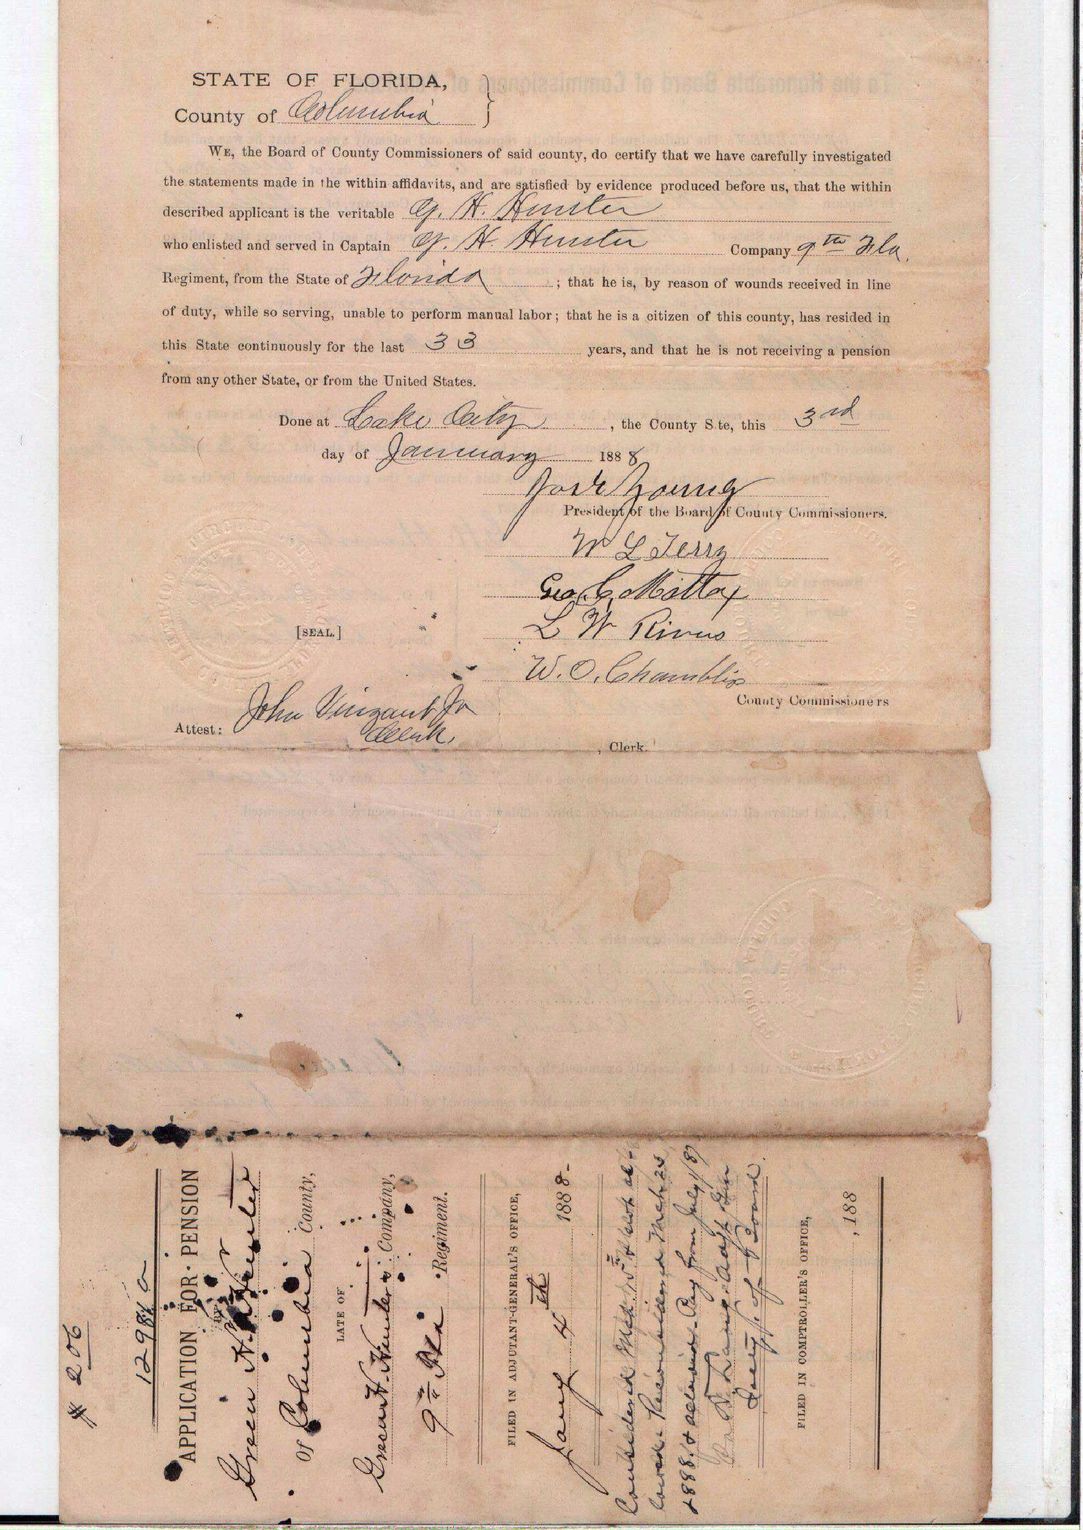 STATE OF FLORIDA,
County of Columbia
WE, the Board of County Commissioners of said county, do certify that we have carefully investigated
the statements made in the within affidavits, and are satisfied by evidence produced before us, that the within
described applicant is the veritable G. H. Hunter
who enlisted and served in Captain G. H. Hunter Company 9th Fla.
Regiment, from the State of Florida ; that he is, by reason of wounds received in line
of duty, while so serving, unable to perform manual labor; that he is a citizen of this county, has resided in
this State continuously for the last 33 years, and that he is not receiving a pension
from any other State, or from the United States.
Done at Lake City , the County S te, this 3rd
day of January 1888
Young
President of the Board of County Commissioners.
W L Terry
Geo. C. Mattox
L W Rivers
[SEAL.]
W. O. Chamblis
County Commissioners
Attest: John Vinzant Jr
Clerk.
, Clerk.
# 206
APPLICATION FOR PENSION
BY
Green H. Hunter
Of Columbia County,
LATE OF
Green H. Hunter's Company,
9th Fla Regiment.
FILED IN ADJUTANT-GENERAL'S OFFICE,
Jany 4th 1888-
Considered Mch. 15th & not al-
lowed. Reconsidered Mch 24
1888. & allowed. Pay from July 1 87
Lang Adjt Gen
Secy of Board.
FILED IN COMPTROLLER'S OFFICE,
, 188